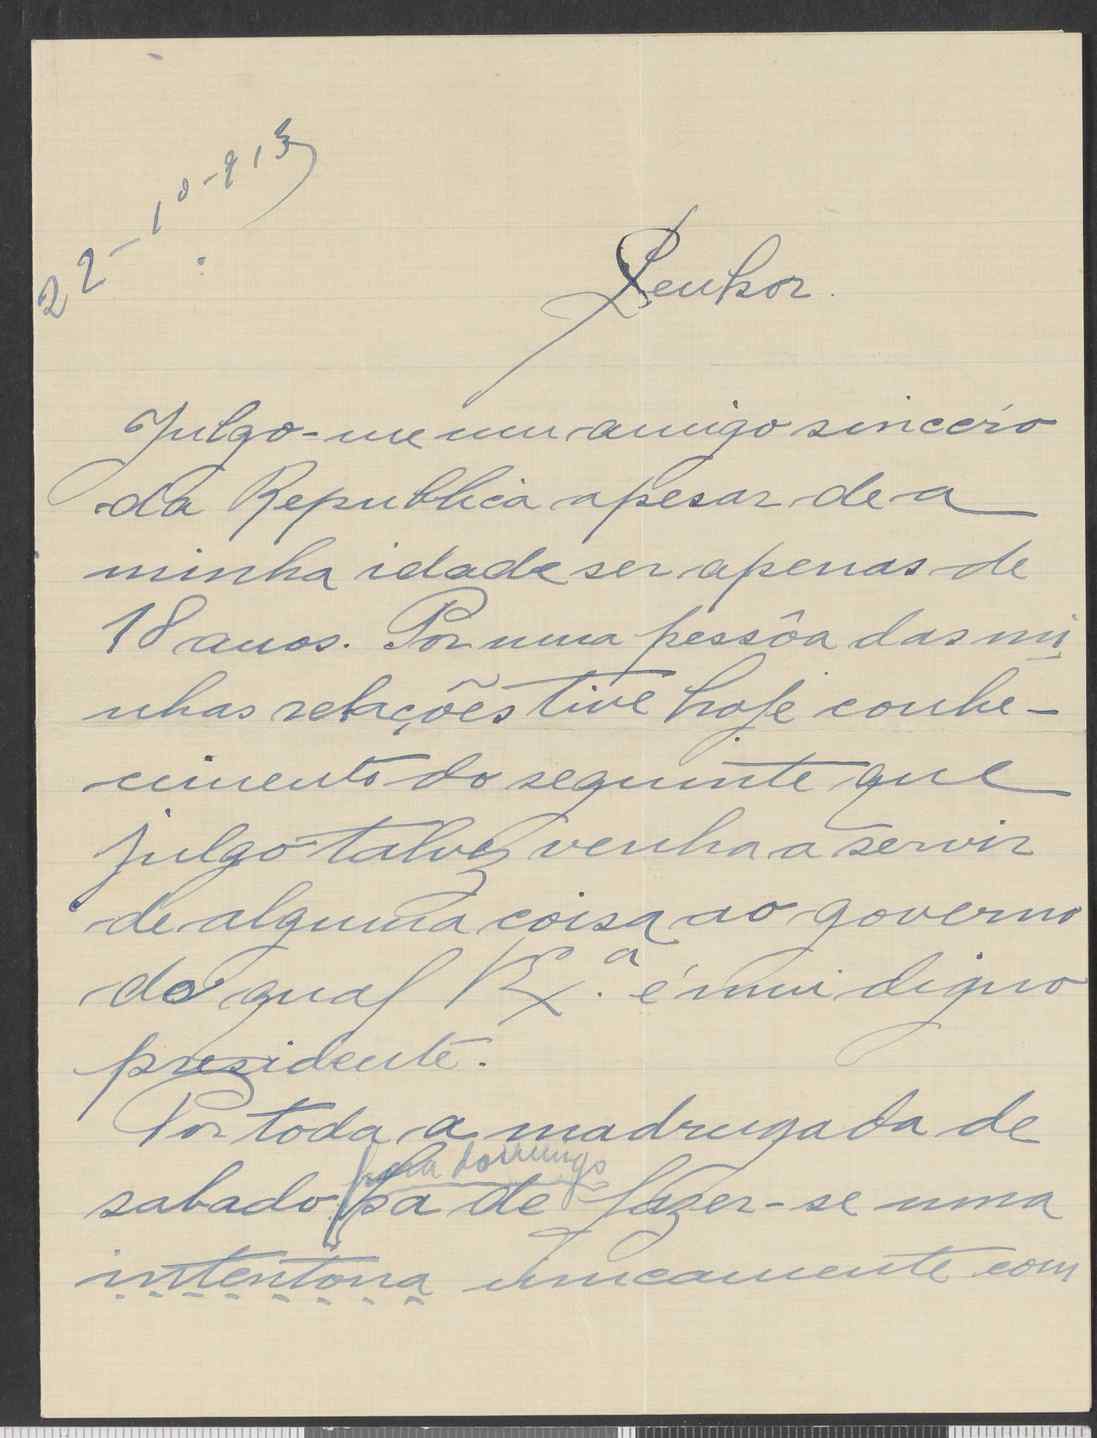 22-10-913
Senhor.
Julgo-me um amigo sincero
da Republica apesar de a
minha idade ser apenas de
18 anos. Por uma pessôa das mi
nhas relações tive hoje conhe-
cimento do seguinte que
julgo talvez venha a servir
de alguma coisa ao governo
do qual V. Ex.ª é mui digno
presidente.
Por toda a madrugada de
para domingo
sabado ha de fazer-se uma
intentona unicamente com